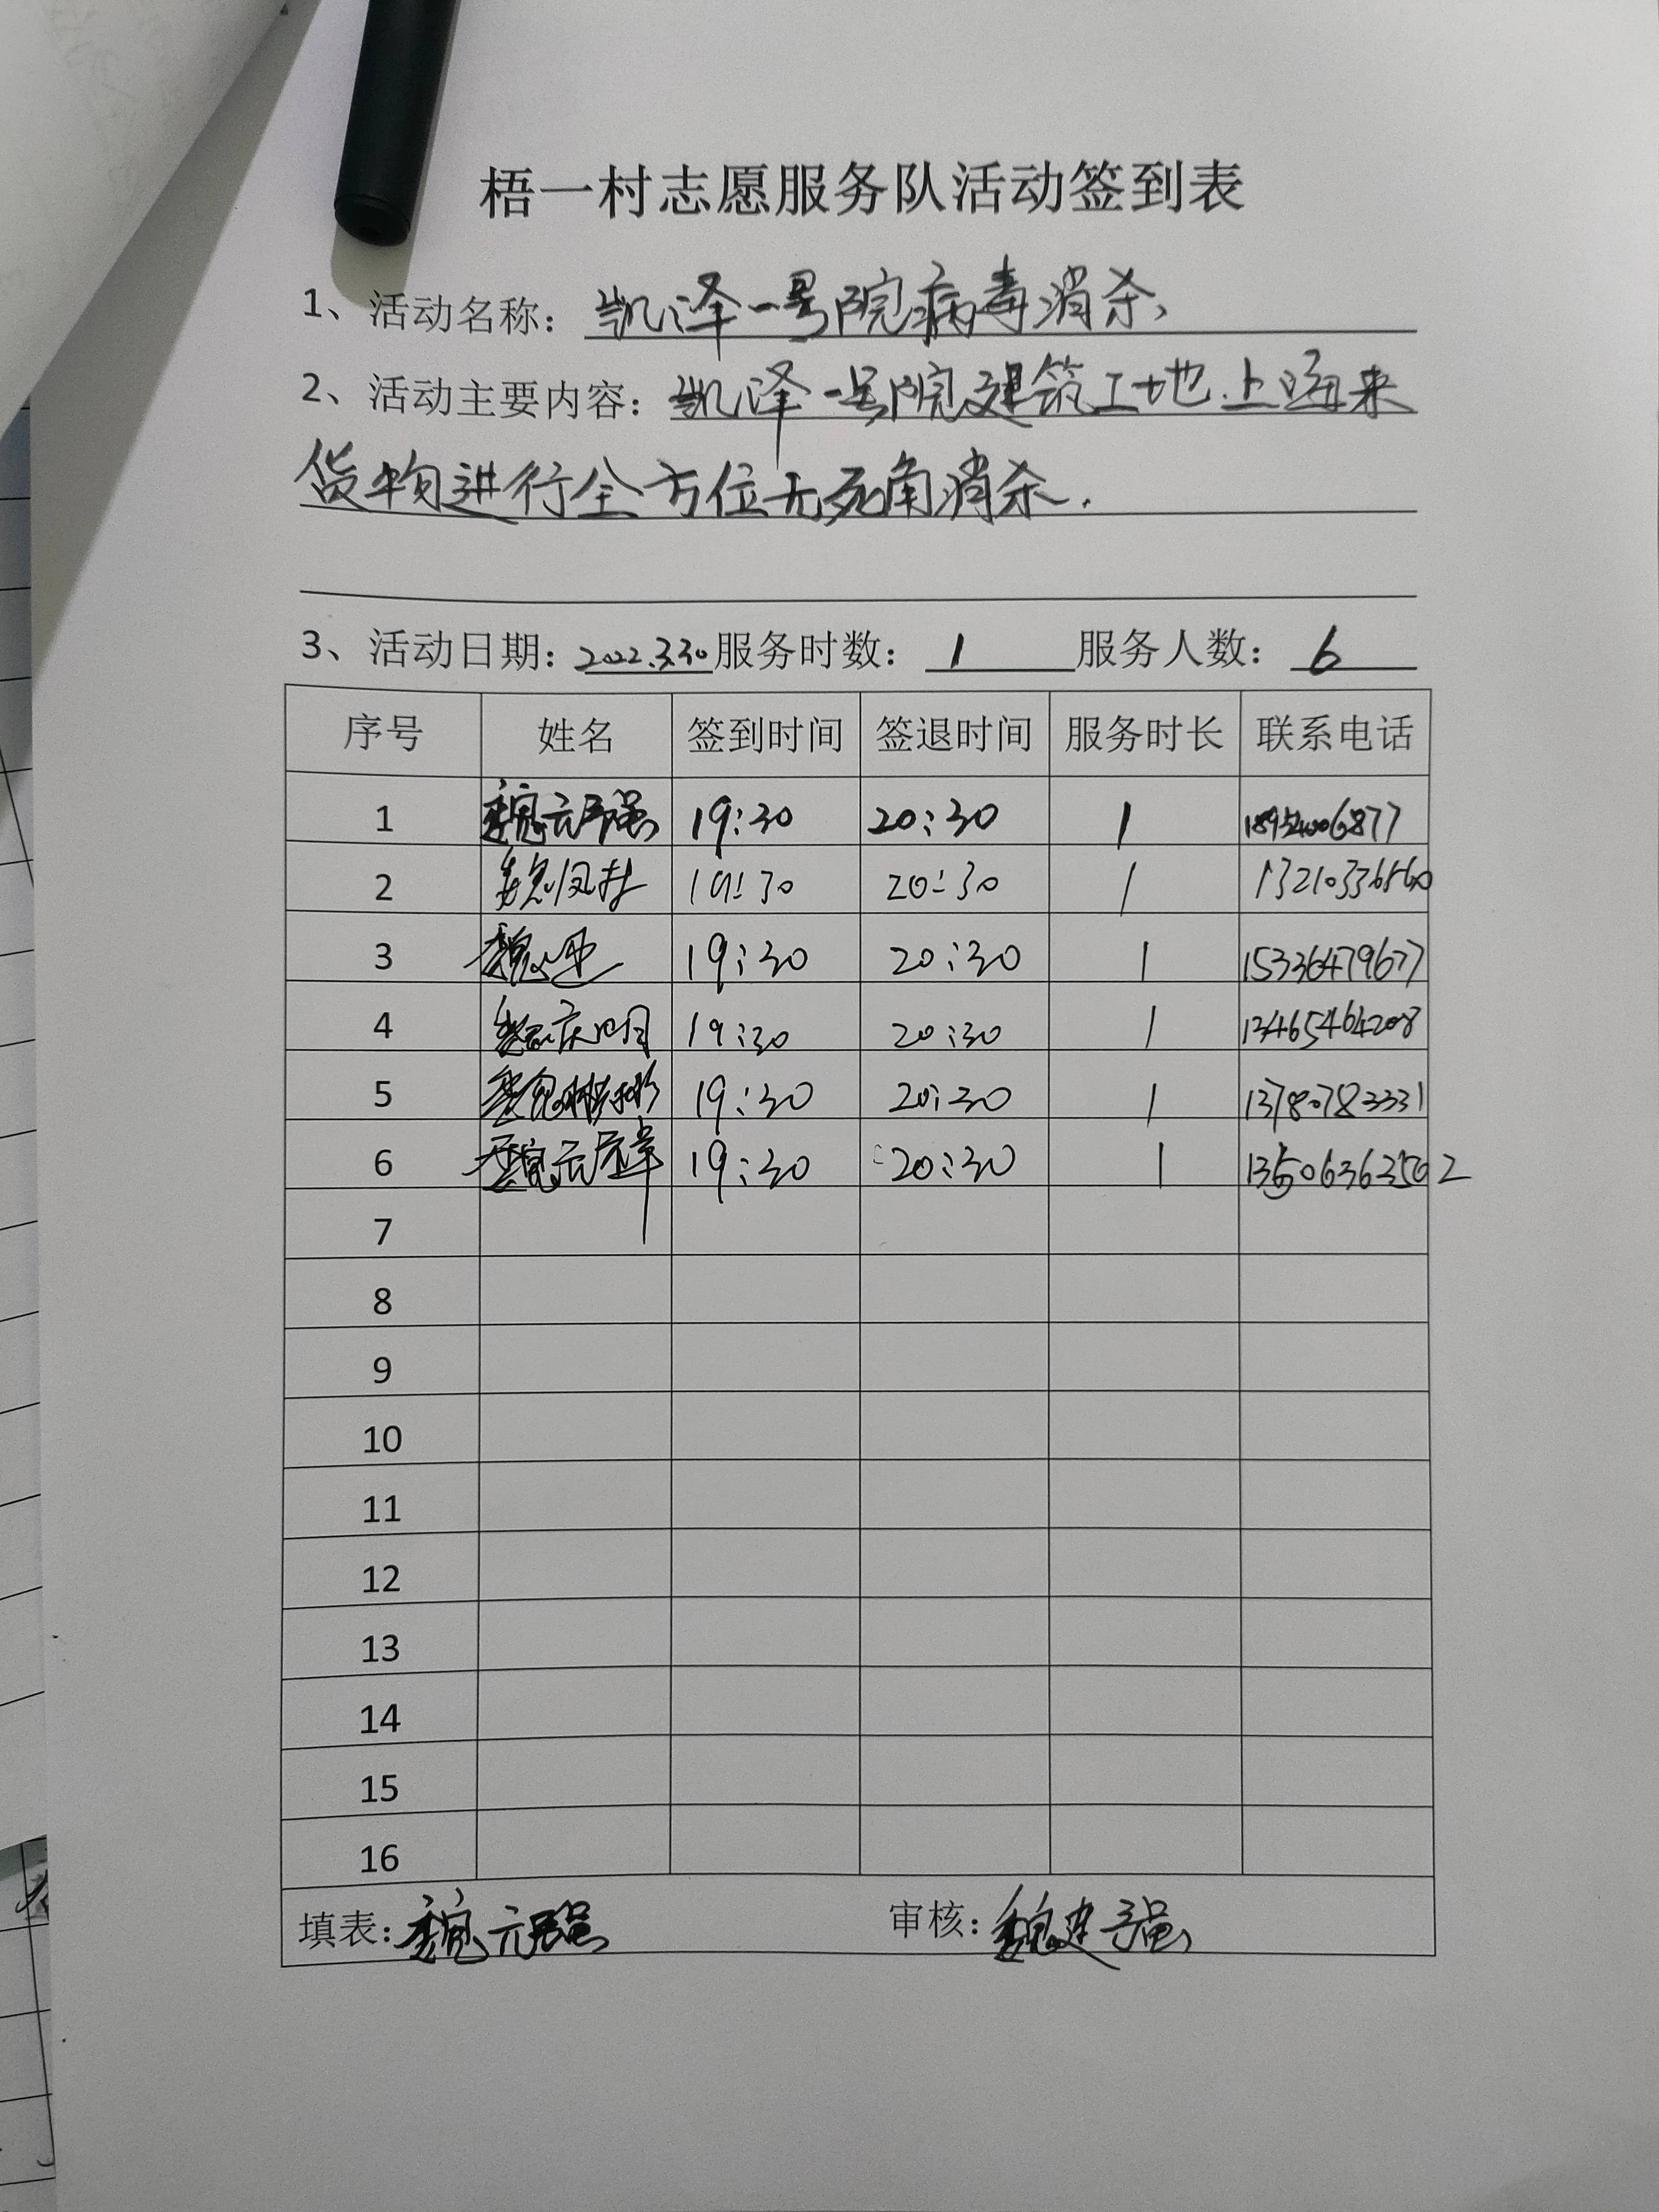 梧一村志愿服务队活动签到表
1、活动名称：凯泽一号院病毒消杀、
2、活动主要内容：凯泽一号院建筑工地.上海来
货物进行全方位无死角消杀.
3、活动日期：2022.3.30 服务时数：1 服务人数：6
序号 姓名 签到时间 签退时间 服务时长 联系电话
1 魏 19:30 20:30 1
2 魏 19:30 20:30 1
3 魏 19:30 20:30 1 15336479677
4 魏 19:30 20:30 1 13465464208
5 魏 19:30 20:30 1 13780783331
6 魏 19:30 20:30 1
7
8
9
10
11
12
13
14
15
16
填表：魏元强 审核：魏建强